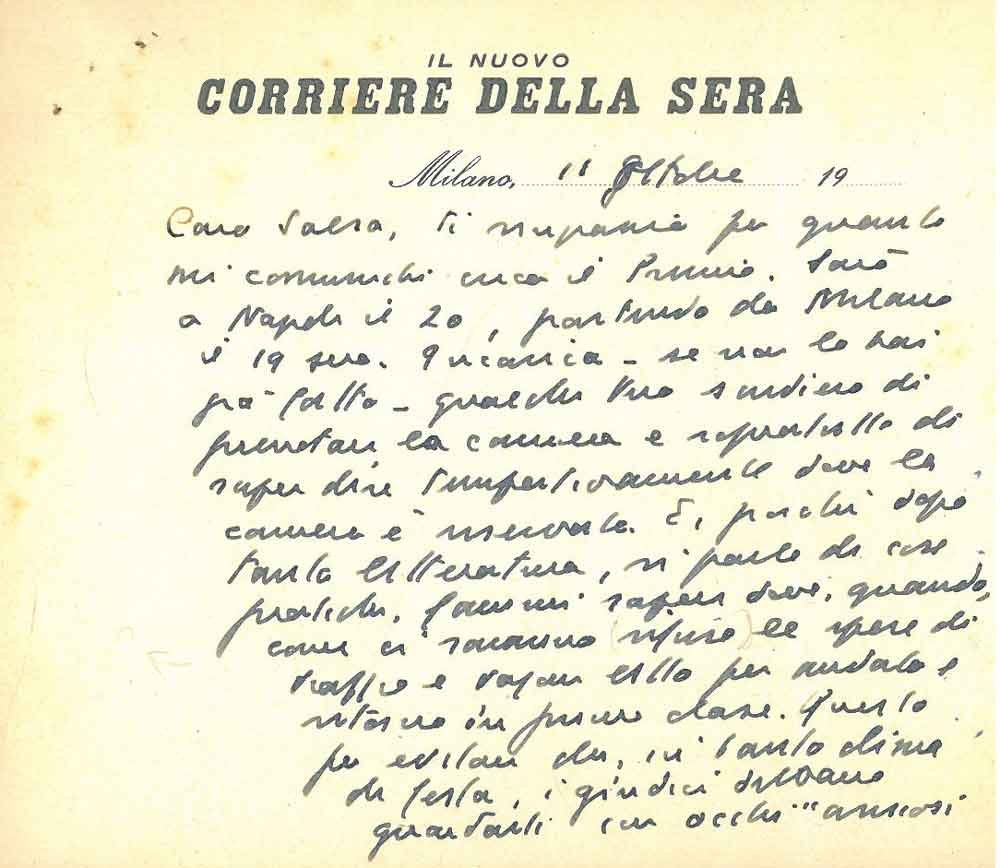 IL NUOVO
CORRIERE DELLA SERA
Milano, 11 Ottobre 19
Caro Salsa, ti ringrazio per quanto
mi comunichi circa il Premio. Sarò
a Napoli il 20, partendo da Milano
il 19 sera. Incarica - se non lo hai
già fatto - qualche tuo scudiero di
prenotare la camera e soprattutto di
saper dire tempestivamente dove la
camera è riservata. E, poiché dopo
tanta letteratura, si parla di cose
pratiche, fammi sapere dove, quando,
come ci saranno rifuse le spese di
viaggio e vagone letto per andata e
ritorno in prima classe. Questo
per evitare che, in tanto clima
di festa, i giudici debbano
guardarti con occhi "ansiosi